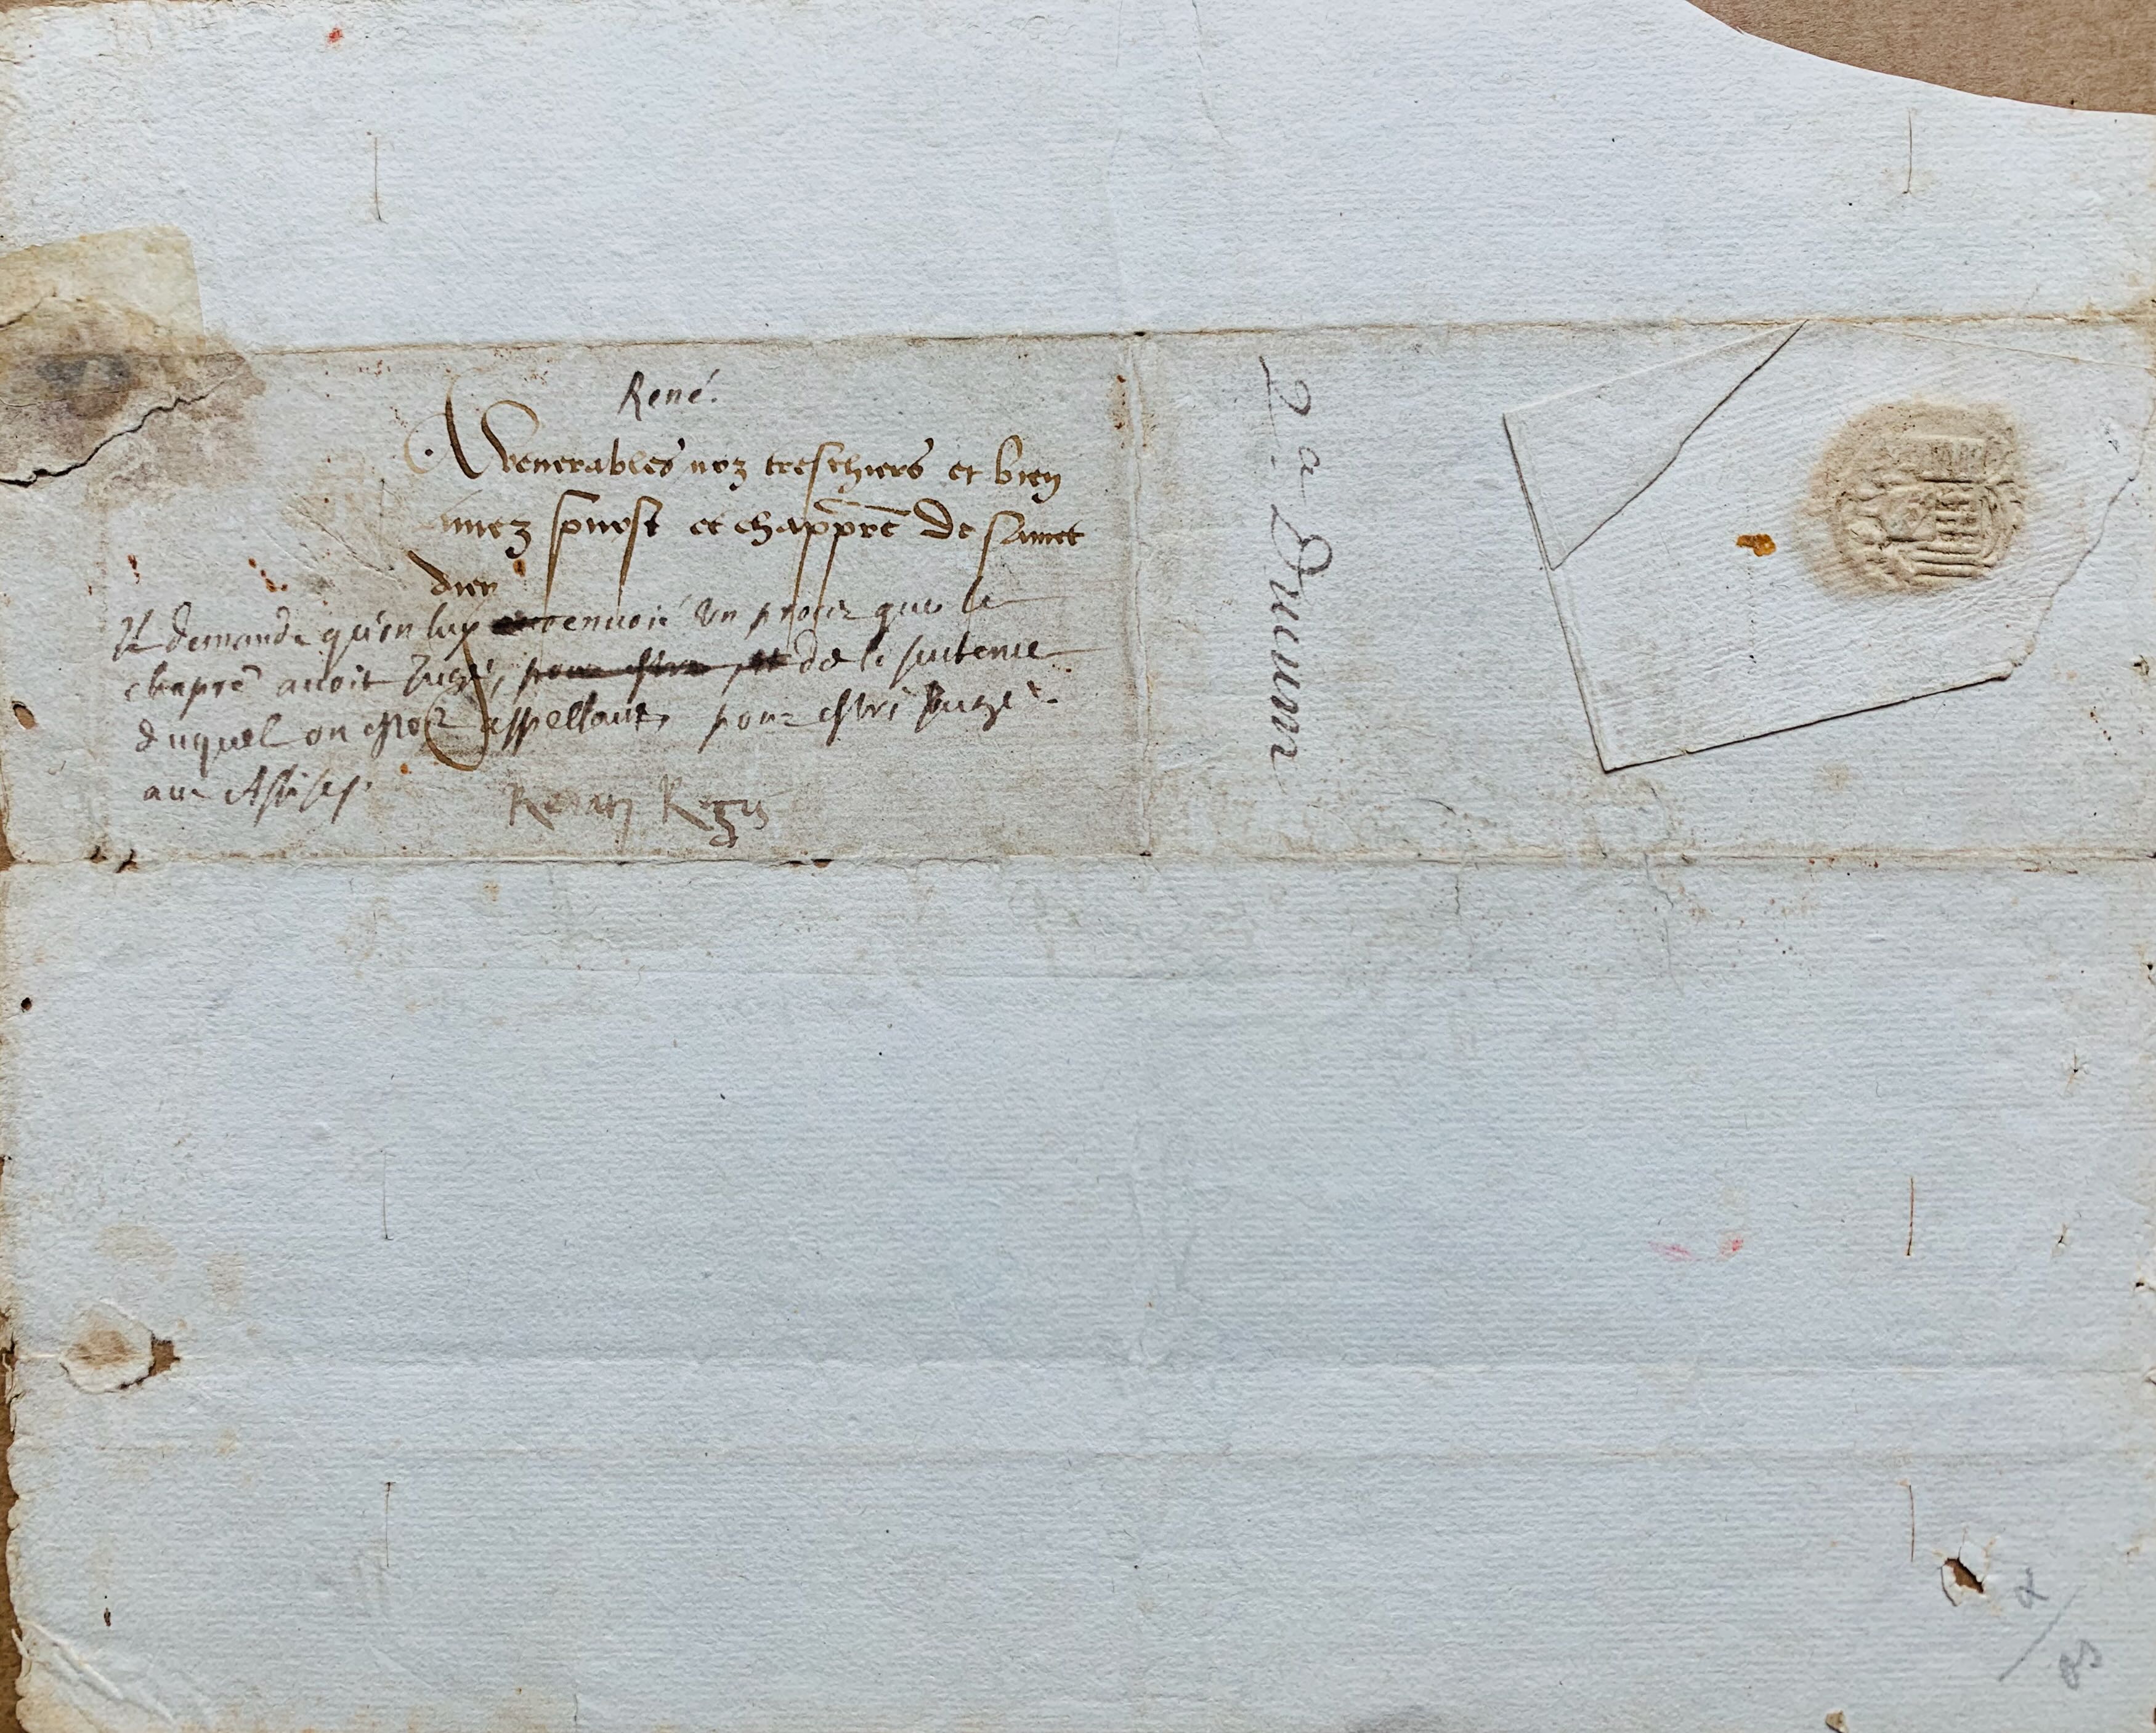 René.
A venerables noz treschiers et bien
amez prevost et chappre de sainct
dien
Il demande qu'on luy renuoie un procez que le
chapre auoit Jugé, pour estre et de la sentence
duquel on estoit appellant, pour estre Jugé
aux Assises.
Renatj Regis